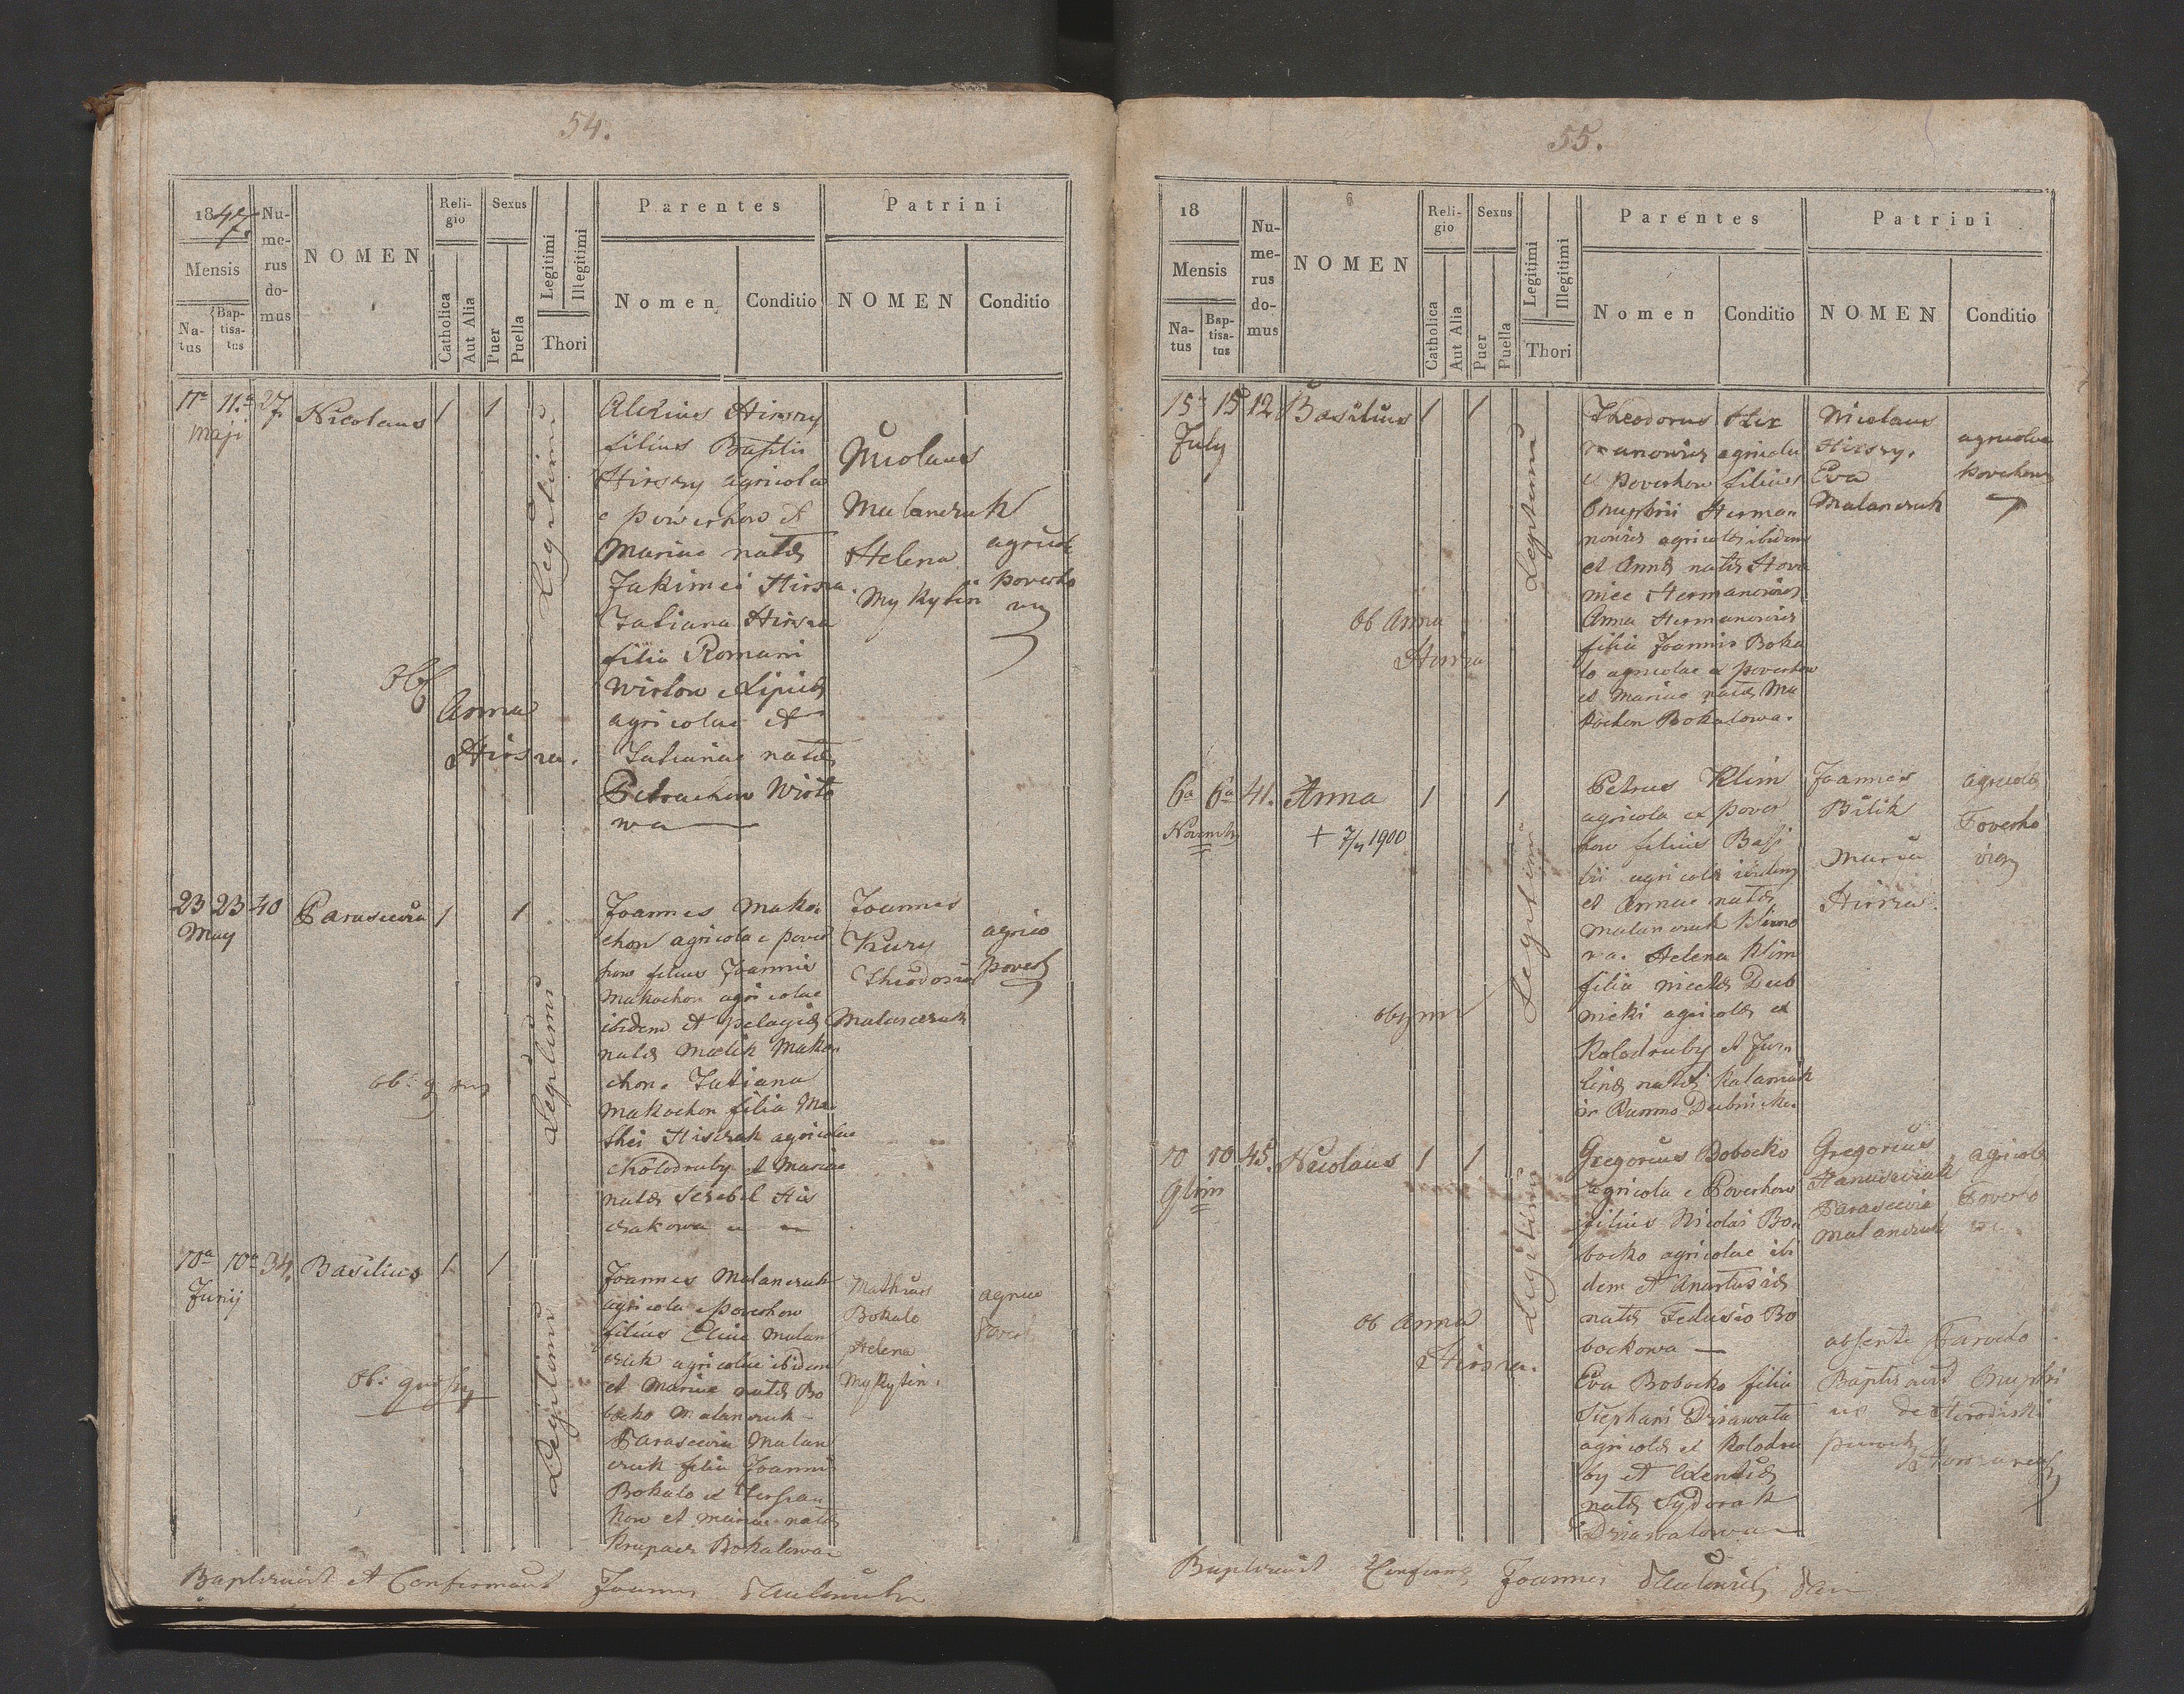 54.
1847.
Mensis
Na-
tus
Bap-
tisa-
tus
Nu-
me-
rus
do-
mus
NOMEN
Reli-
gio
Catholica
Aut Alia
Sexus
Puer
Puella
Legitimi
Illegitimi
Thori
Parentes
Nomen
Conditio
Patrini
NOMEN
Conditio
11a 11.a 27
maji
Nicolaus 1 1
Legitimi
Alexius Hirszy
filius Basilii
Hirszy agricola
e powerhow et
Mariae natae
Jakimci Hirsza
Tatiana Hirsza
filia Romani
Wislow e Lipice
agricolae et
Tatianae natae
Petrachow Wisto
wa
Nicolaus
Malanczuk
Helena
Mykytin
agricol
poverho
Obs
Anna
Hirszra.
23 23 40
May
Parascevia 1 1
Legitimi
Joannes Mako.
chon agricola e pover
how filius Joannis
Makochon agricolae
ibidem et pelagiae
natae Melik Mako.
chon. Tatiana
Makochon filia Ma
thei Hiszrak agricolae
e Kolodruby et Mariae
natae Serebel His
zrakowa
Joannes
Kury
Theodosia
Malanczuk
agrico
poverh
10a 10a 34.
Junij
Basilius 1 1
Legitimi
Joannes Malanczuk
agricola e poverhow
filius Eliae Malan
czuk agricolae ibidem
et Mariae natae Bo
bocko Malanczuk
Parascevia Malan
czuk filia Joannis
Bokalo et
how et Mariae natae
Krupacz Bokalowa
Mathias
Bokalo
Helena
Mykytin.
agrico
Baptisavit et Confirmavit Joannes
55.
18
Mensis
Na-
tus
Bap-
tisa-
tus
Nu-
me-
rus
do-
mus
NOMEN
Reli-
gio
Catholica
Aut Alia
Sexus
Puer
Puella
Legitimi
Illegitimi
Thori
Parentes
Nomen
Conditio
Patrini
NOMEN
Conditio
15a 15a 12
July
Basilius 1 1
Legitimi
Theodorus Her
manowicz agricola
e poverhow filius
Onuphrii Herma
nowicz agricolae ibidem
et Annae natae Hora
niec Hermanowicz
Anna Hermanowicz
filia Joannis Boka
lo agricolae e poverhow
et Mariae natae Ma
kochon Bokalowa.
Nicolaus
Hirszy.
Eva
Malanczuk
agricolae
poverhow
Ob Anna
Hirszra
6a 6a 41.
Novembr
Anna 1 1
+ 7/4 1900
Legitimi
Petrus Klim
agricola e pover
how filius Basi
lii agricolae ibidem
et Annae natae
Malanczuk Klimo
wa. Helena Klim
filia Nicolae Dub
nicki agricolae e
Kolodruby et
natae Kalamuk
Joannes
Bilik
Maria
Hirsza
agricolae
Poverho
vien
10 10 45.
9bris
Nicolaus 1 1
Legitimi
Gregorius Bobocko
agricola e Poverhow
filius Nicolai Bo.
bocko agricolae ibi
dem et Anastasiae
natae Fedusio Bo
bockowa
Eva Bobocko filia
Stephani Driawata
agricolae e Kolodru
by et Axentiae
natae Sydorak
Driawatowa
Gregorius
Parascevia
Malanczuk
agricolae
Poverho
Ob Anna
Hirszra.
absente Parocho
Baptisavit Onuphri
us de Horodiski
Baptisavit Confirm Joannes